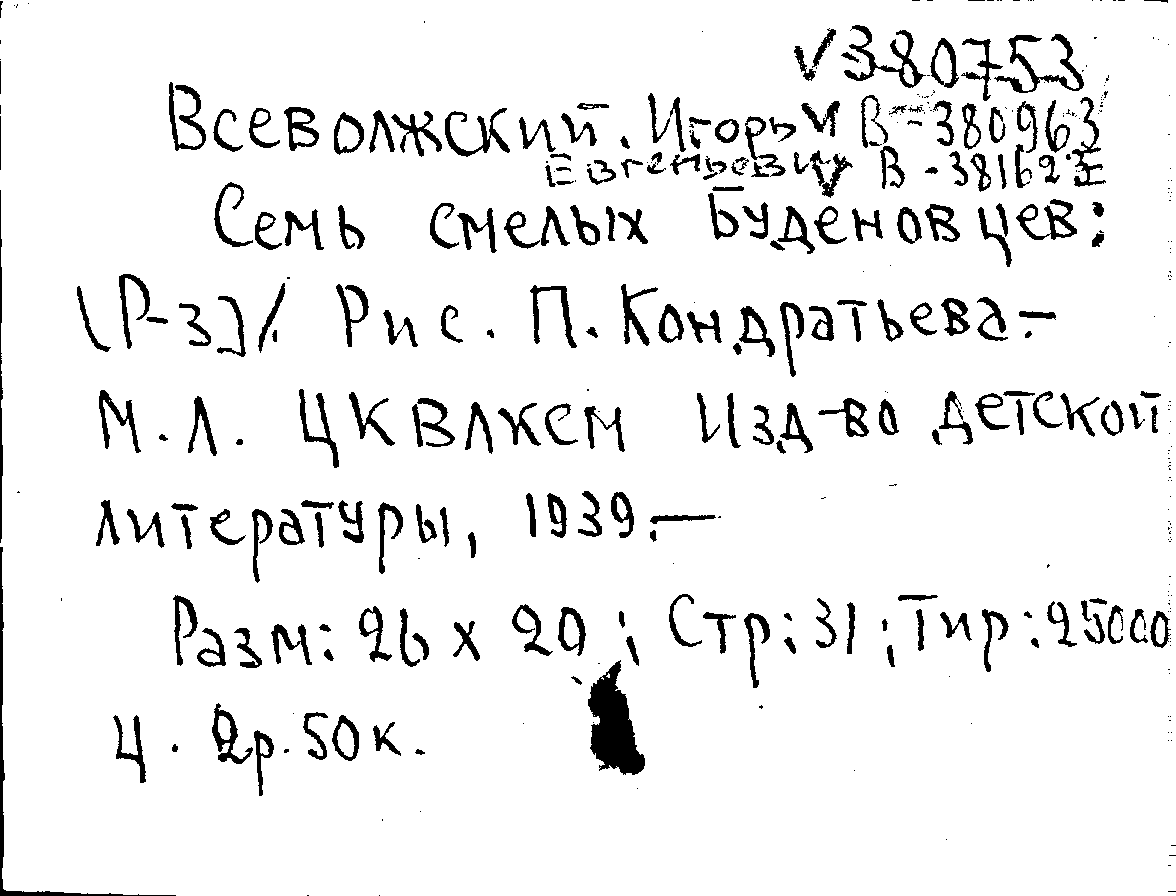 √380753
Всеволжский. Игорь √ В-380963
Евгеньевич √ В-381623
Семь смелых Будёновцев:
[Р-з]/. Рис. П. Кондратьева.-
М.Л. ЦКВЛКСМ Изд-во детской
литературы, 1939.—
Разм: 26 х 20 ; Стр: 31 ; Тир: 25000
Ц. 2р. 50к.